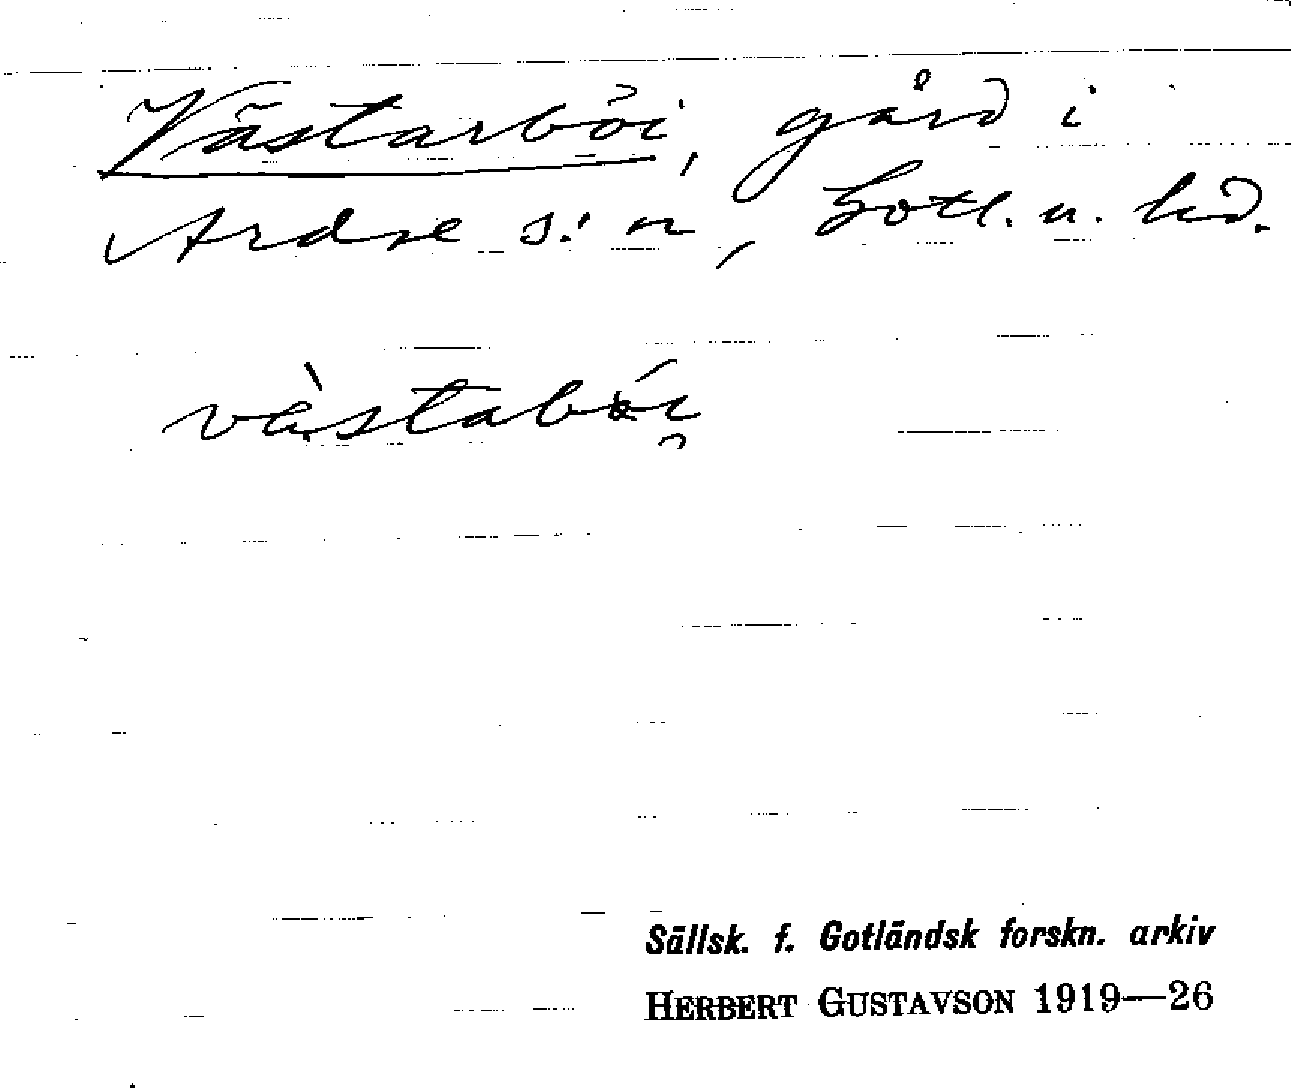 Västarböi, gård i
Ardre s:n, Gotl. n. hd.
västaböi
Sällsk. f. Gotländsk forskn. arkiv
HERBERT GUSTAVSON 1919—26